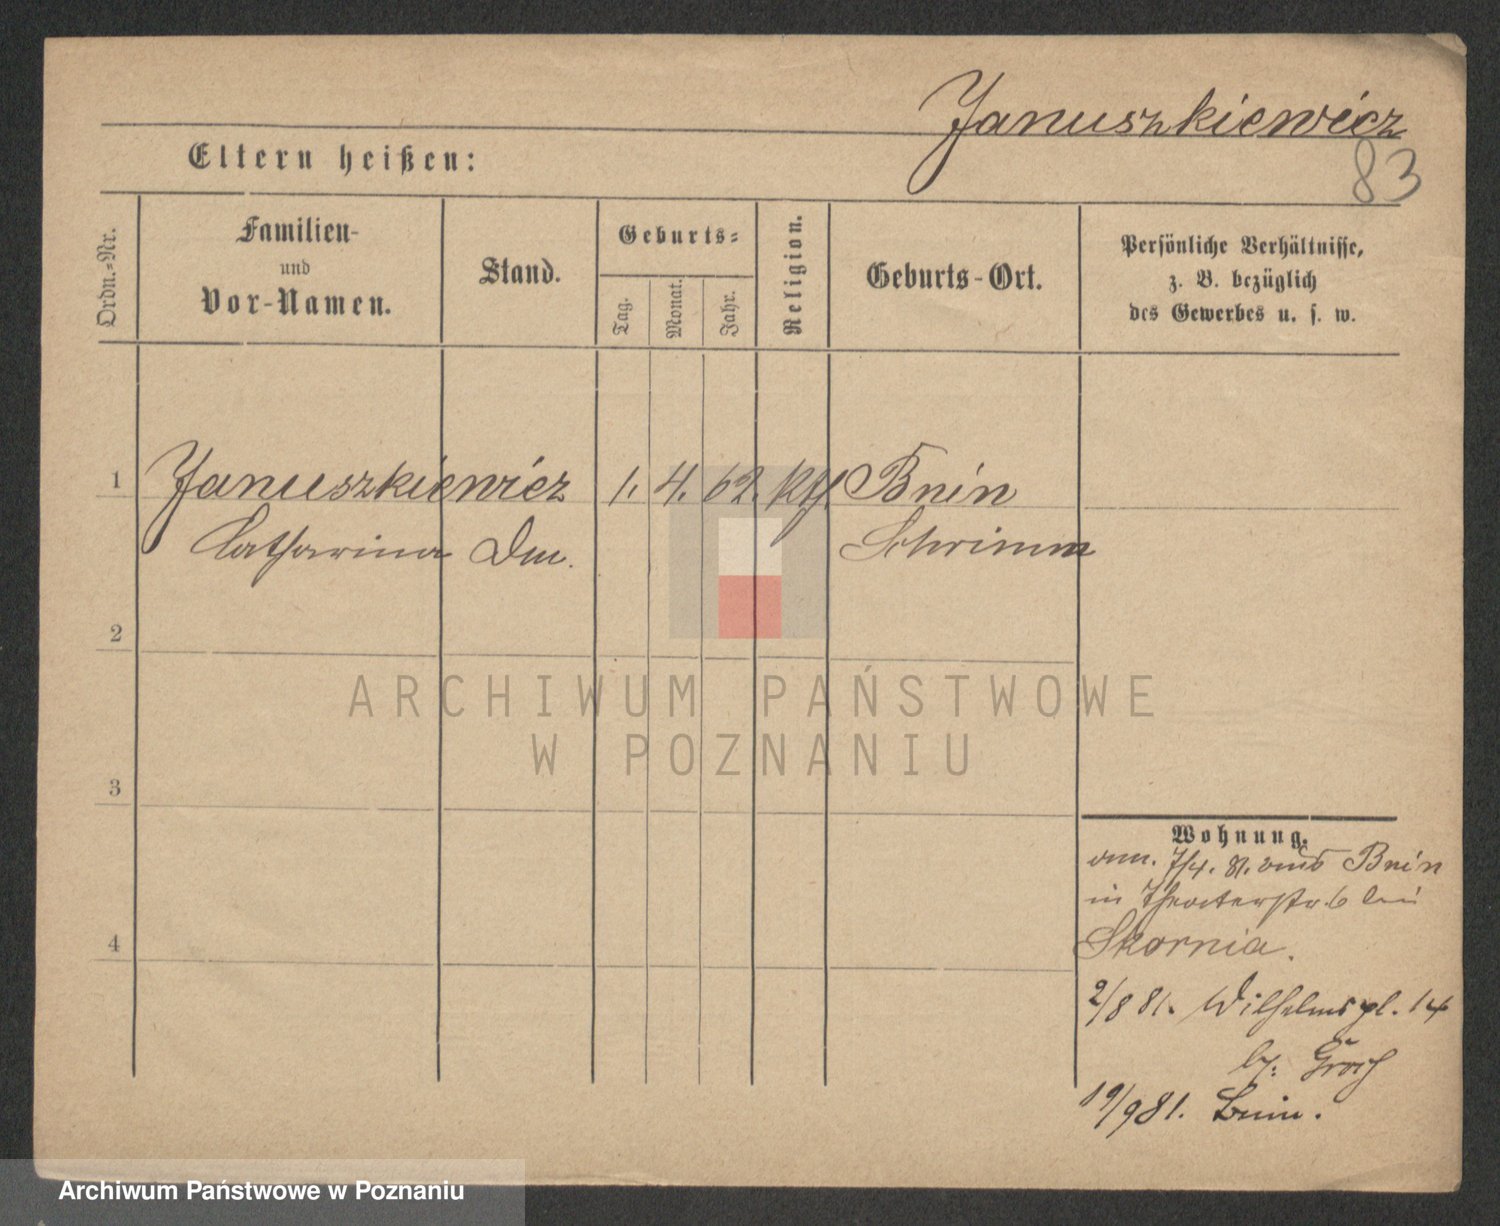 Januszkiewicz
83
Eltern heißen:
Ordn.-Nr.
Familien-
und
Vor-Namen.
Stand.
Geburts-
Tag.
Monat.
Jahr.
Religion.
Geburts-Ort.
Persönliche Verhältnisse,
z. B. bezüglich
des Gewerbes u. s. w.
1 Januszkiewicz 1. 4. 62. kth. Bnin
Catharina Schrimm
2
3
4
Wohnung.
7/4. 81. aus Bnin
in Theaterstr. 6 bei
Skornia.
2/8 81. Wilhelmspl. 14
b.
19/9 81. Bnin.
ARCHIWUM PAŃSTWOWE
W POZNANIU
Archiwum Państwowe w Poznaniu